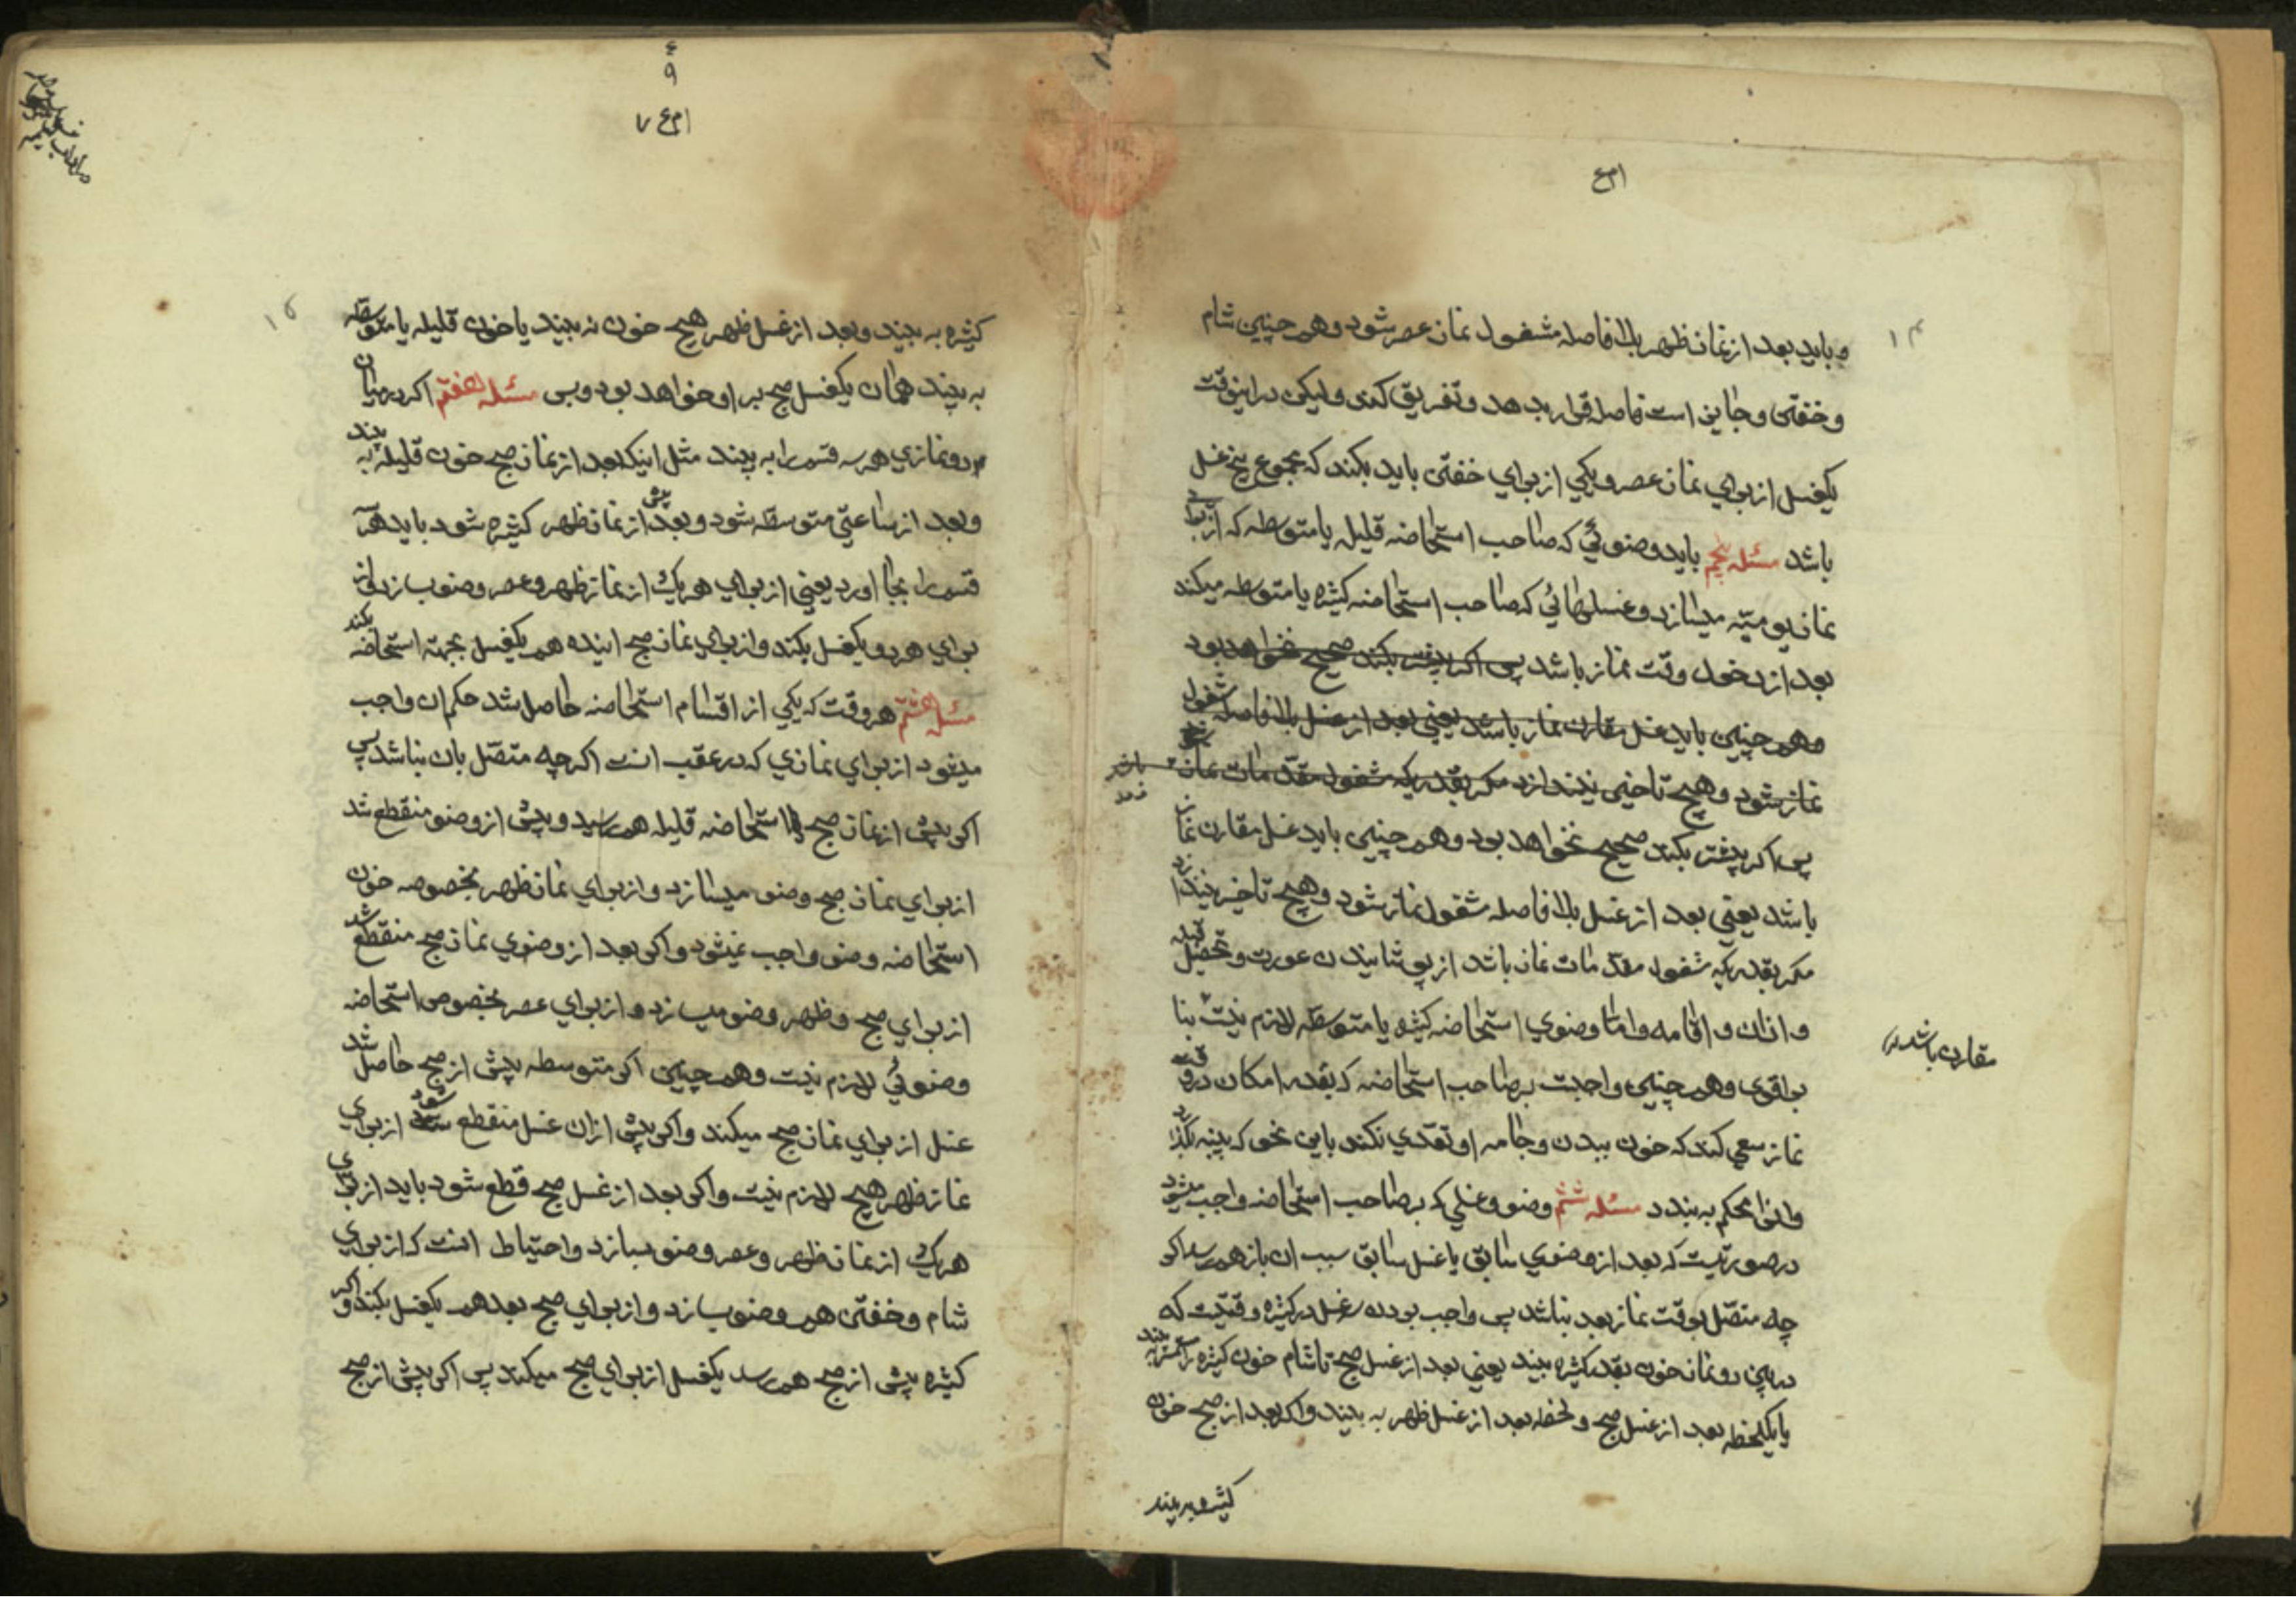 و باید بعد از نماز ظهر بلا فاصله مشغول نماز عصر شود و همچنین شام
و خفتن و جایز است فاصله قرار بدهد و تفریق کند ولیکن در اینوقت
یکغسل از برای نماز عصر و یکی از برای خفتن باید بکند که مجموع پنج غسل
باشد مسئله پنجم باید وضوئی که صاحب استحاضه قلیل یا متوسطه که از برای
نماز یومیّه میسازد و غسلهائی که صاحب استحاضه کثیره یا متوسطه میکند
بعد از دخول وقت نماز باشد پس اکر پیشتر بکند صحیح نخواهد بود
و همچنین باید غسل مقارن نماز باشد یعنی بعد از غسل بلا فاصله مشغول
نماز شود و هیچ تاخیر نیندازد مکر بقدریکه مشغول مقدّمات نماز
پس اکر پیشتر بکند صحیح نخواهد بود و همچنین باید غسل مقارن نماز
باشد یعنی بعد از غسل بلا فاصله مشغول نماز شود و هیچ تاخیر نیندازد
مکر بقدریکه مشغول مقدّمات نماز باشد از پوشانیدن عورت و تحصیل قبله
و اذان و اقامه و امّا وضوی استحاضه کثیره یا متوسّطه لازم نیست بنا
مقارن باشد
بر اقوی و همچنین واجبست بر صاحب استحاضه که بقدر امکان در وقت
نماز سعی کند که خون ببدن و جامه او تعدّی نکند باین نحو که پنبه بکذارد
و انرا محکم به بندد مسئله ششم وضو و غسلی که بر صاحب استحاضه واجب میشود
در صورتیست که بعد از وضوی سابق یا غسل سابق سبب ان باز همرسد اکر
چه متصّل بوقت نماز بعد نباشد پس واجب بودن سه غسل در کثیره وقتیست که
در بین دو نماز خون بقدر کثیره بیند یعنی بعد از غسل صبح تا شام خون کثیره را مستمر به بیند
یا یکلحظه بعد از غسل صبح و لحظه بعد از غسل ظهر به بیند و اکر بعد از صبح خون
کثیره به بیند
کثیره به بیند و بعد از غسل ظهر هیچ خون نه بیند یا خون قلیله یا متوسّطه
به بیند همان یکغسل صبح بر او خواهد بود و بس مسئله هفتم اکر در میان
دو نمازی هر سه قسم را به بیند مثل اینکه بعد از نماز صبح خون قلیله به بیند
و بعد از ساعتی متوسّطه شود و بعد پیش از نماز ظهر کثیره شود باید هر سه
قسم را بجا اورد یعنی از برای هر یک از نماز ظهر و عصر وضو بسازد و از
برای هر دو یکغسل بکند و از برای نماز صبح اینده هم یکغسل بجهة استحاضه بکند
مسئله هشتم هر وقت که یکی از اقسام استحاضه حاصل شد حکم ان واجب
میشود از برای نمازی که در عقب انست اکرچه متصّل بان نباشد پس
اکر پیش از نماز صبح استحاضه قلیله همرسید و پیش از وضو منقطع شد
از برای نماز صبح وضو میسازد و از برای نماز ظهر بخصوصه خون
استحاضه وضو واجب نمیشود و اکر بعد از وضوی نماز صبح منقطع شد
از برای صبح و ظهر وضو میسازد و از برای عصر بخصوص استحاضه
وضوئی لازم نیست و همچنین اکر متوسطه پیش از صبح حاصل شد
غسل از برای نماز صبح میکند و اکر پیش از ان غسل منقطع شود از برای
نماز ظهر هیچ لازم نیست و اکر بعد از غسل صبح قطع شود باید از برای
هر یک از نماز ظهر و عصر وضو بسازد و احتیاط انست که از برای
شام و خفتن هم وضو بسازد و از برای صبح بعد هم یکغسل بکند و اکر
کثیره پیش از صبح همرسد یکغسل از برای صبح میکند پس اکر پیش از صبح